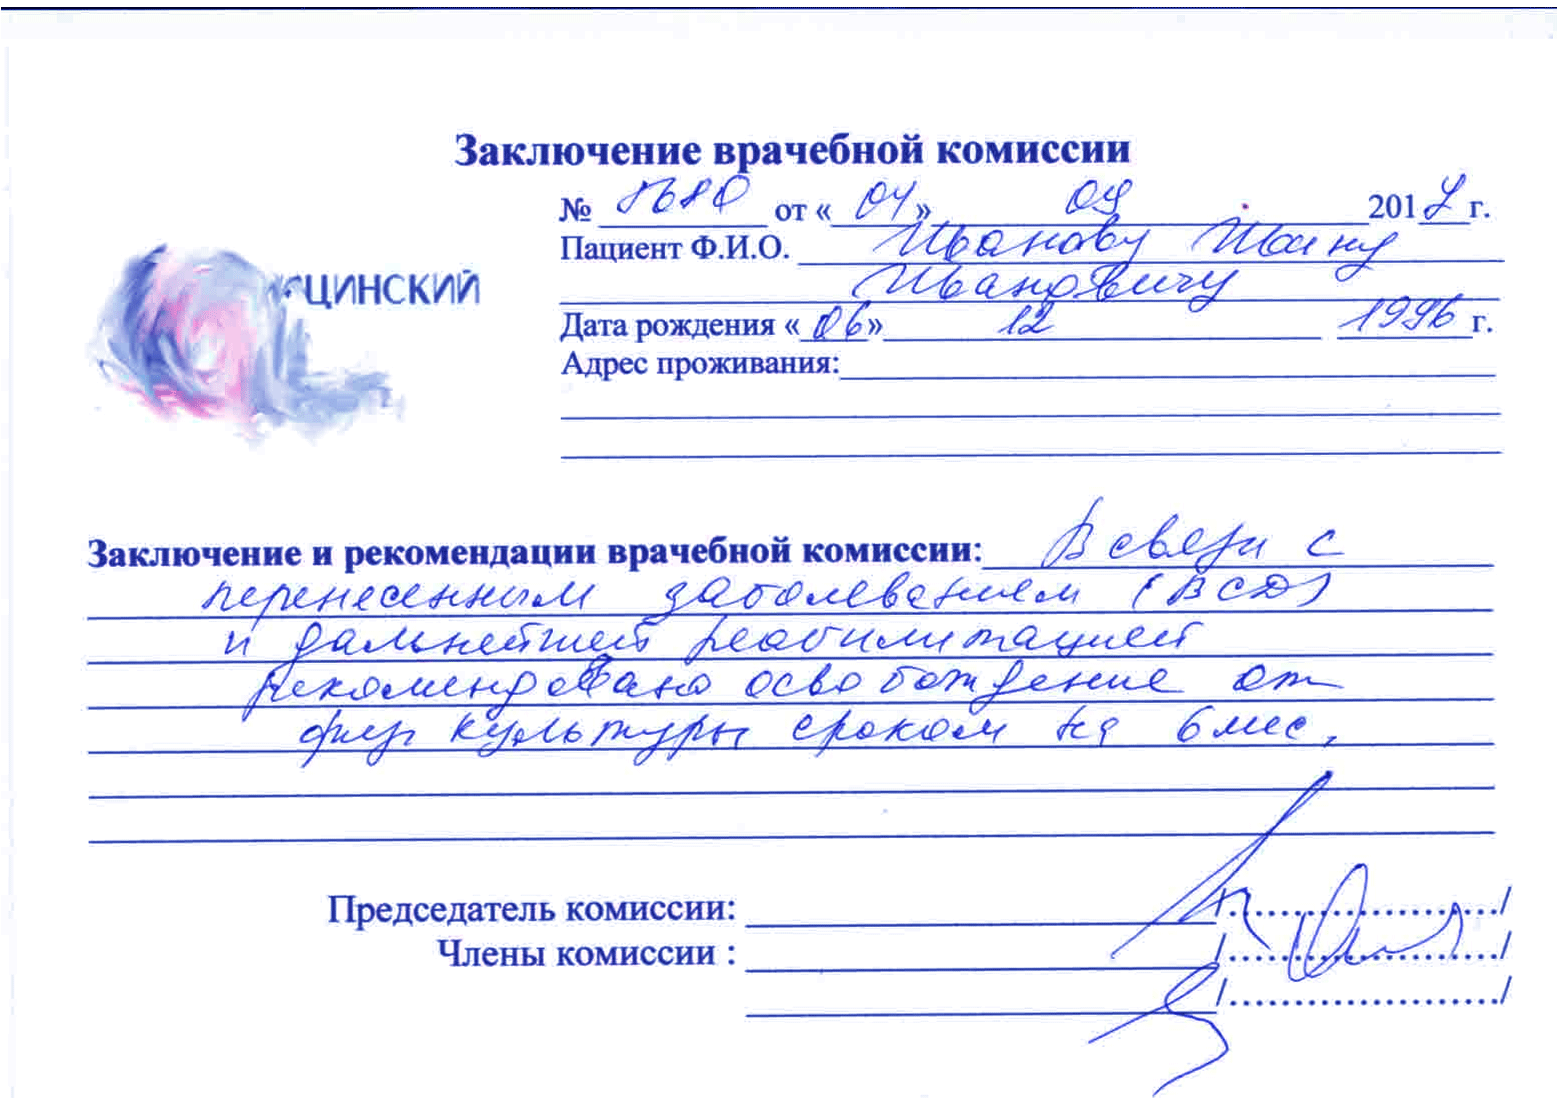 Заключение врачебной комиссии
№ 1680 от « 04 » 09 2017 г.
ЦИНСКИЙ
Пациент Ф.И.О. Иванову Ивану
Ивановичу
Дата рождения « 06 » 12 1996 г.
Адрес проживания:
Заключение и рекомендации врачебной комиссии: В связи с
перенесенным заболеванием (ВСД)
и дальнейшей реабилитацией
рекомендовано освобождение от
физ культуры сроком на 6 мес.
Председатель комиссии:
Члены комиссии :